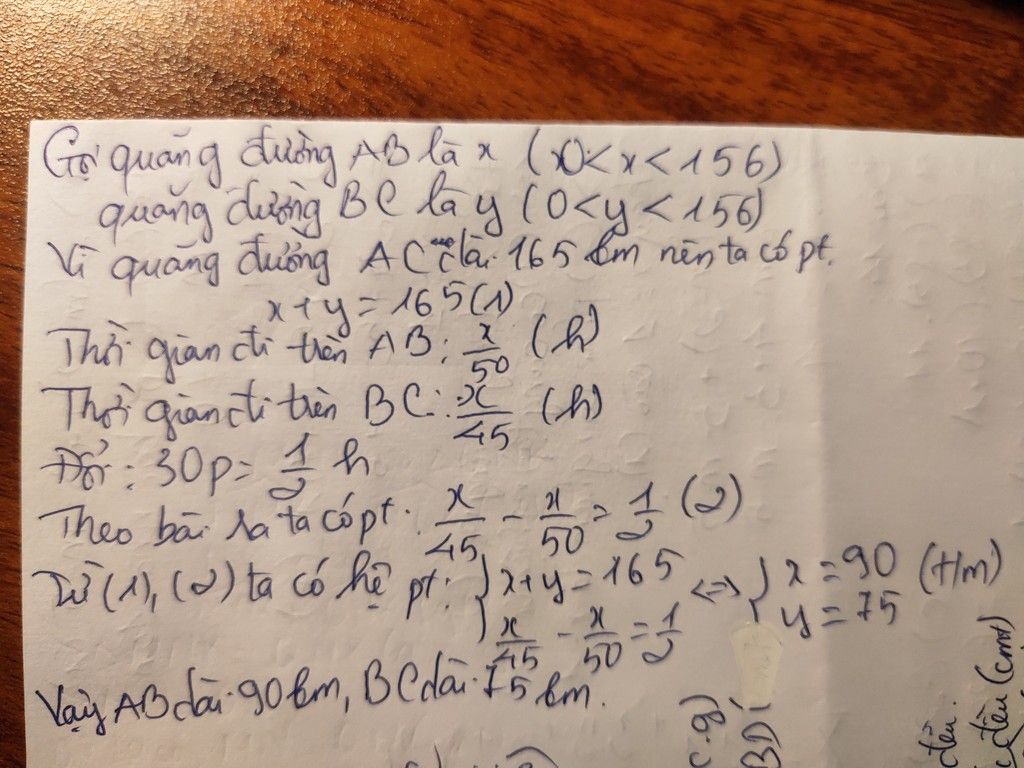 Gọi quãng đường AB là x (0<x<156)
quãng đường BC là y (0<y<156)
Vì quãng đường AC dài 165 km nên ta có pt.
x+y=165(1)
Thời gian đi trên AB: x/50 (h)
Thời gian đi trên BC: x/45 (h)
Đổi: 30p= 1/2 h
Theo bài ra ta có pt: x/45 - x/50 = 1/2 (2)
Từ (1), (2) ta có hệ pt: { x+y=165 ; x/45 - x/50 = 1/2 <=> { x=90 ; y=75 (t/m)
Vậy AB dài 90 km, BC dài 75 km.
c.g)
BD
đtên.
đtên (cmt)